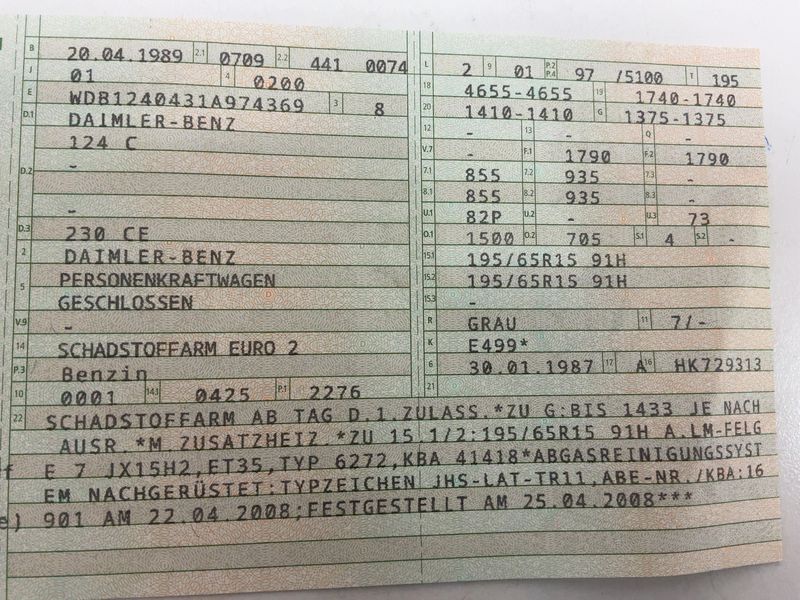 B 20.04.1989 2.1 0709 2.2 441 0074
J 01 4 0200
E WDB1240431A974369 3 8
D.1 DAIMLER-BENZ
124 C
D.2 -
-
D.3 230 CE
2 DAIMLER-BENZ
5 PERSONENKRAFTWAGEN
GESCHLOSSEN
V.9 -
14 SCHADSTOFFARM EURO 2
P.3 Benzin
10 0001 14.1 0425 P.1 2276
L 2 9 01 P.2 P.4 97 /5100 T 195
18 4655-4655 19 1740-1740
20 1410-1410 G 1375-1375
12 - 13 - Q -
V.7 - F.1 1790 F.2 1790
7.1 855 7.2 935 7.3 -
8.1 855 8.2 935 8.3 -
U.1 82P U.2 - U.3 73
O.1 1500 O.2 705 S.1 4 S.2 -
15.1 195/65R15 91H
15.2 195/65R15 91H
15.3 -
R GRAU 11 7/-
K E499*
6 30.01.1987 17 A 16 HK729313
21
22 SCHADSTOFFARM AB TAG D.1.ZULASS.*ZU G:BIS 1433 JE NACH
AUSR.*M.ZUSATZHEIZ.*ZU 15.1/2:195/65R15 91H A.LM-FELG
f E 7 JX15H2,ET35,TYP 6272,KBA 41418*ABGASREINIGUNGSSYST
EM NACHGERÜSTET:TYPZEICHEN JHS-LAT-TR11,ABE-NR./KBA:16
e) 901 AM 22.04.2008;FESTGESTELLT AM 25.04.2008***